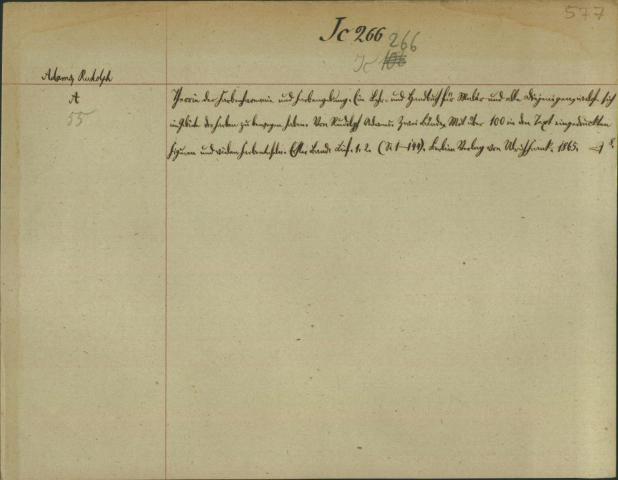 577
Jc 266
266
Jc 106
Adams Rudolph
A
55
Theorie der Farbenharmonie und Farbengebung. Ein Lehr- und Handbuch für Maler und alle diejenigen, welche sich
im Gebiete der Farben zu bewegen haben. Von Rudolph Adams. Zwei Bände. Mit über 100 in den Text eingedruckten
Figuren und vielen Farbentafeln. Erster Band. Lief. 1. 2. (S. 1-144). Berlin Verlag von 1865.